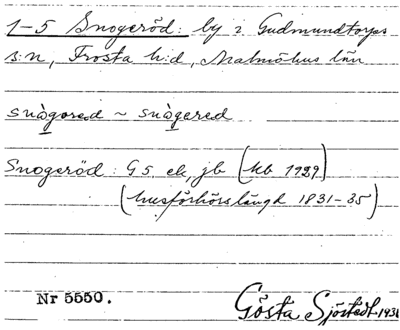 1–5 Snogeröd: by i Gudmundtorps
s:n, Frosta h:d, Malmöhus län
snǫ̀gǝred ~ snǫ̀gered
Snogeröd: G5 ek, jb (kb 1929)
(husförhörslängd 1831–35)
Nr 5550.
Gösta Sjöstedt. 1931